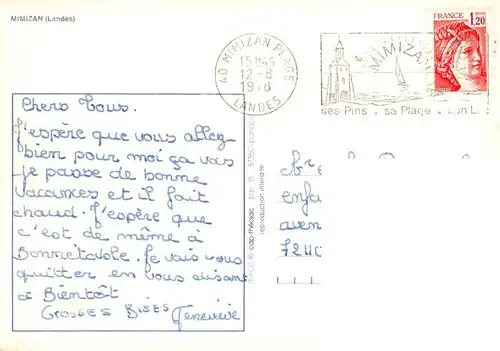 MIMIZAN (Landes)
40 MIMIZAN PLAGE
15H45
12-8
1978
LANDES
MIMIZAN
ses Pins . sa Plage . son L
FRANCE
1,20
Chers Tous.
J'espère que vous allez
bien pour moi ça vas
je passe de bonne
vacances et il fait
chaud. J'espère que
c'est de même à
Bonnétable. Je vais vous
quitter en vous disant
à Bientôt
Grosses Bises Geneviève
reproduction interdite
enfa
aven